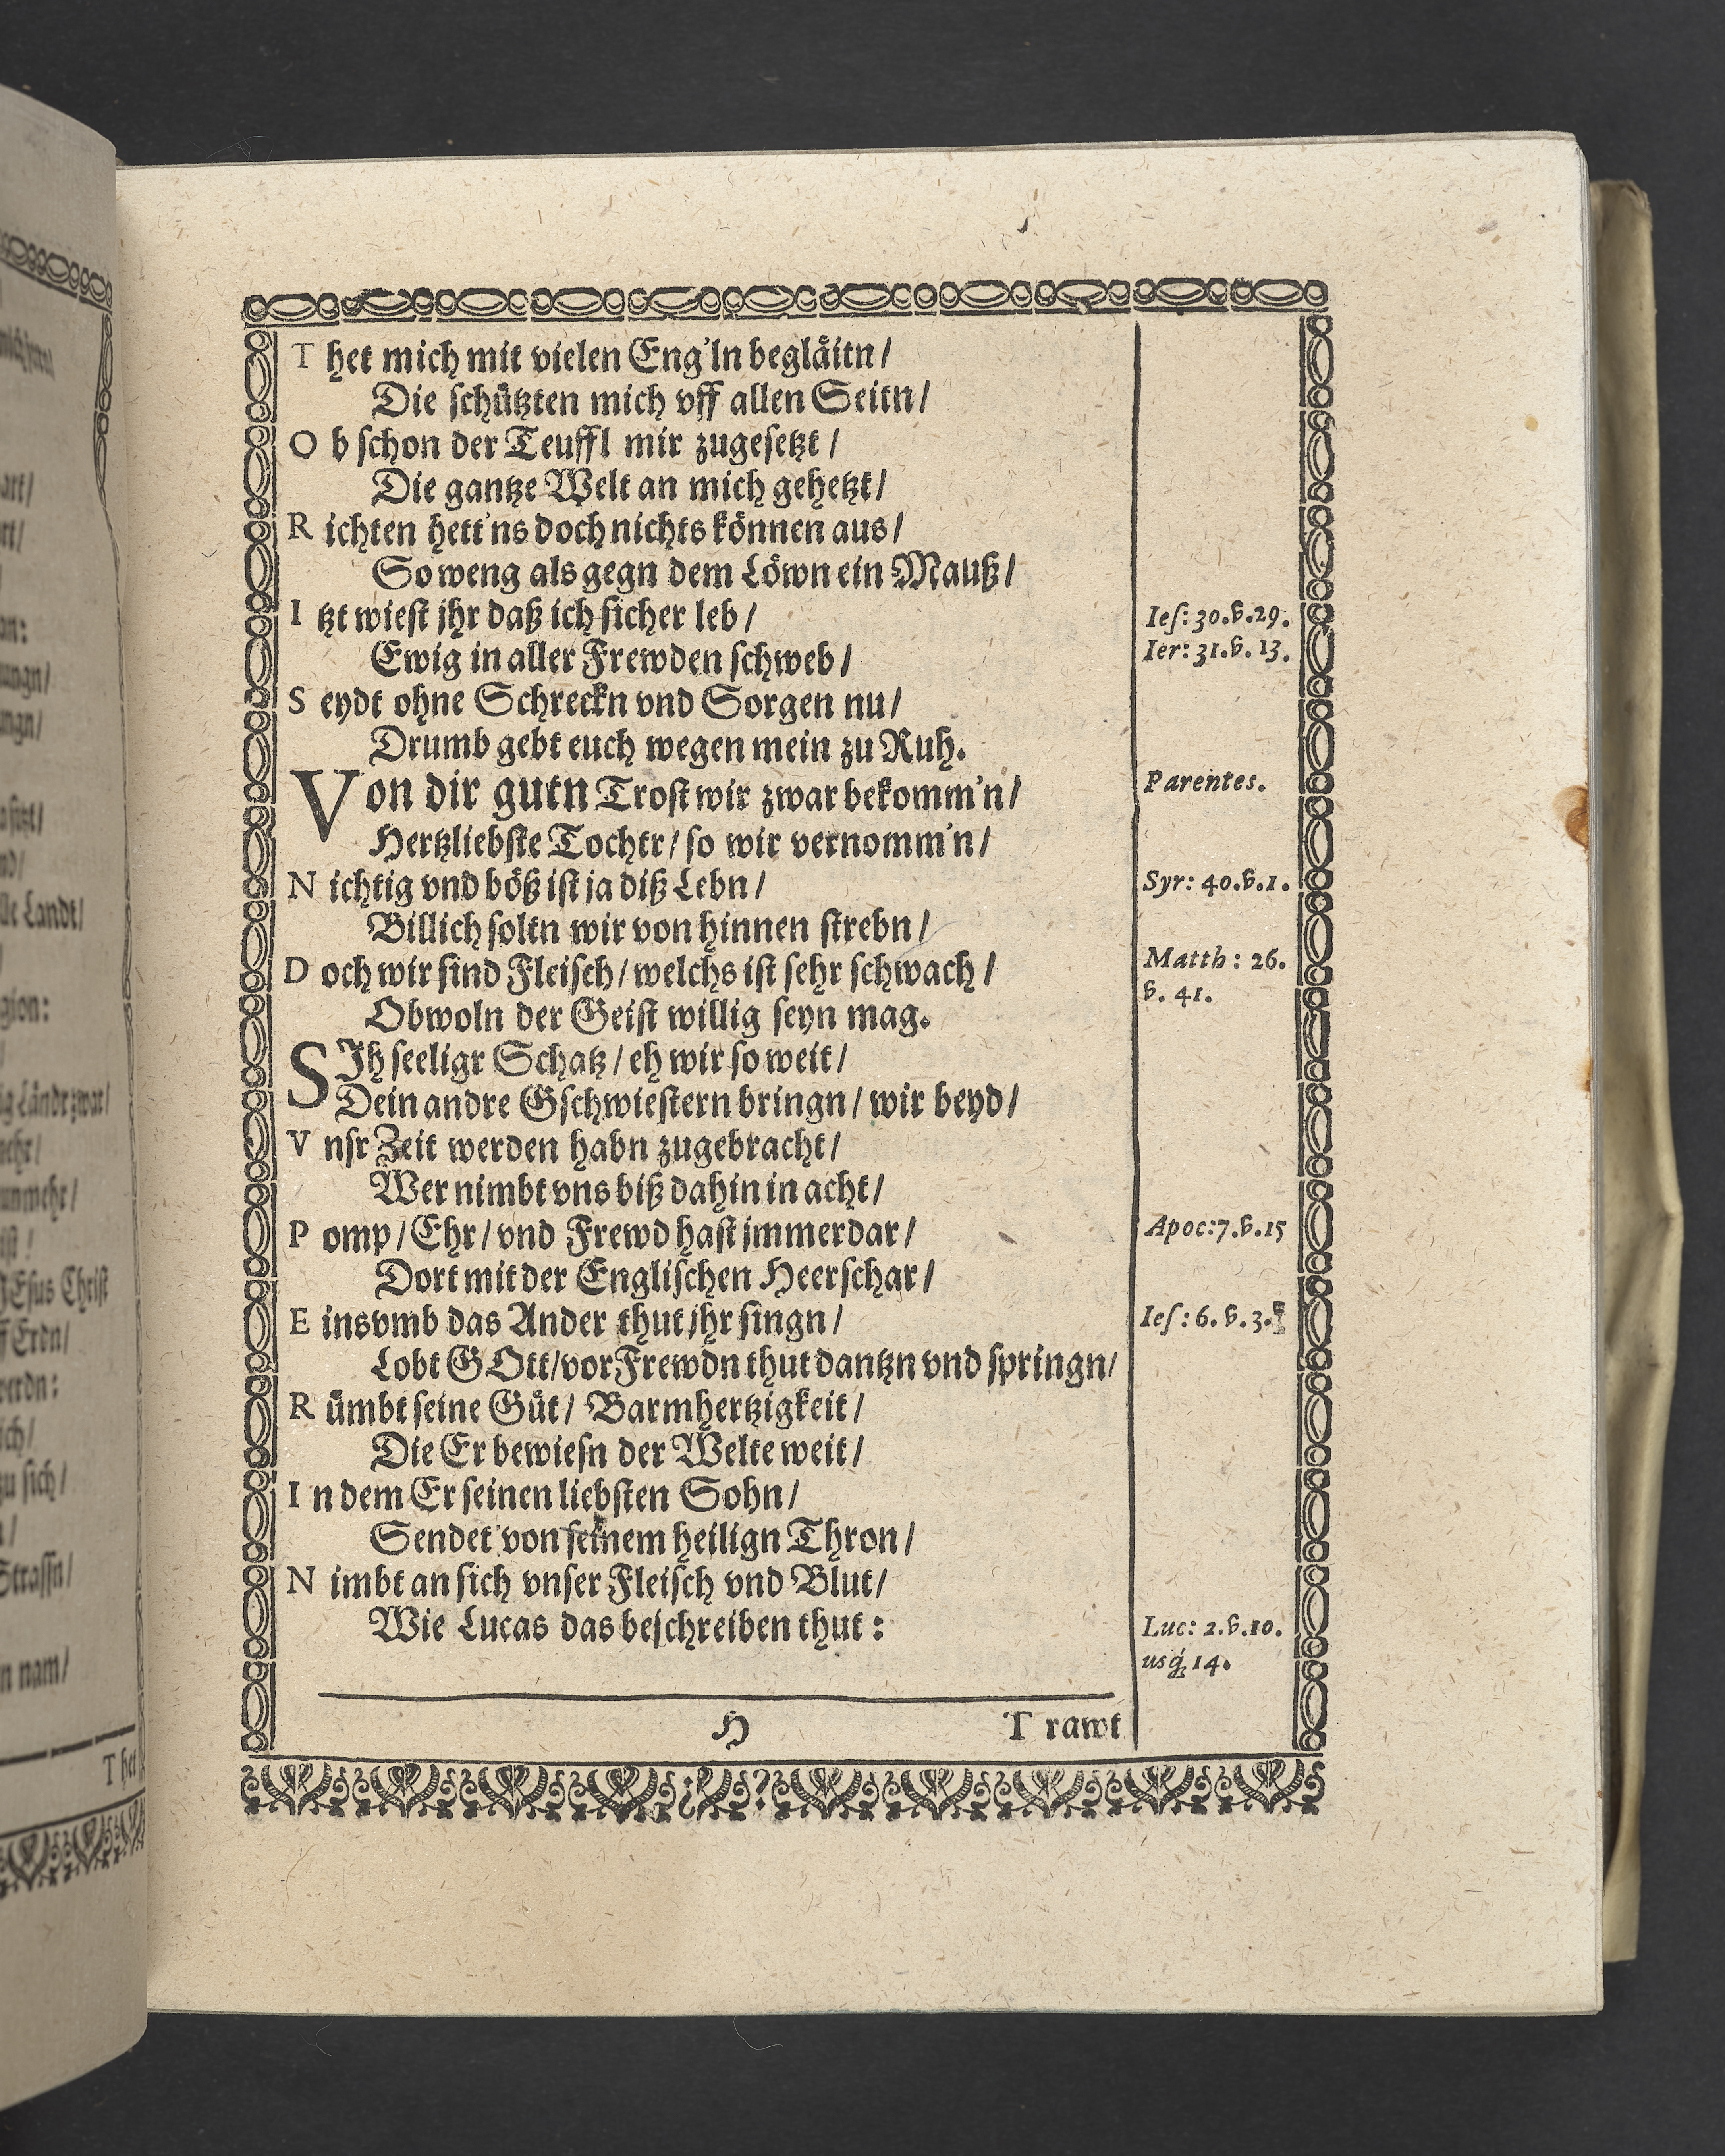 T het mich mit vielen Eng'ln begläitn/
Die ſchützten mich vff allen Seitn/
O b ſchon der Teuffl mir zugeſetzt/
Die gantze Welt an mich gehetzt/
R ichten hett'ns doch nichts können aus/
So weng als gegn dem Löwn ein Mauß/
I tzt wieſt jhr daß ich ſicher leb/
Ieſ: 30.v.29.
Ewig in aller Frewden ſchweb/
Ier: 31.v.13.
S eydt ohne Schreckn vnd Sorgen nu/
Drumb gebt euch wegen mein zu Ruh.
Von dir gutn Troſt wir zwar bekomm'n/
Parentes.
Hertzliebſte Tochtr/ ſo wir vernomm'n/
N ichtig vnd böß iſt ja diß Lebn/
Syr: 40.v.1.
Billich ſoltn wir von hinnen ſtrebn/
D och wir ſind Fleiſch/ welchs iſt ſehr ſchwach/
Matth: 26.
v. 41.
Obwoln der Geiſt willig ſeyn mag.
SJh ſeeligr Schatz/ eh wir ſo weit/
Dein andre Gſchwieſtern bringn/ wir beyd/
V nſr Zeit werden habn zugebracht/
Wer nimbt vns biß dahin in acht/
P omp/ Ehr/ vnd Frewd haſt jmmerdar/
Apoc:7.v.15
Dort mit der Engliſchen Heerſchar/
E ins vmb das Ander thut jhr ſingn/
Ieſ: 6. v. 3.
Lobt GOtt/ vor Frewdn thut dantzn vnd ſpringn/
R ümbt ſeine Güt/ Barmhertzigkeit/
Die Er bewieſn der Welte weit/
I n dem Er ſeinen liebſten Sohn/
Sendet von ſeinem heilign Thron/
N imbt an ſich vnſer Fleiſch vnd Blut/
Wie Lucas das beſchreiben thut:
Luc: 2.v.10.
usq́; 14.
H
T rawt